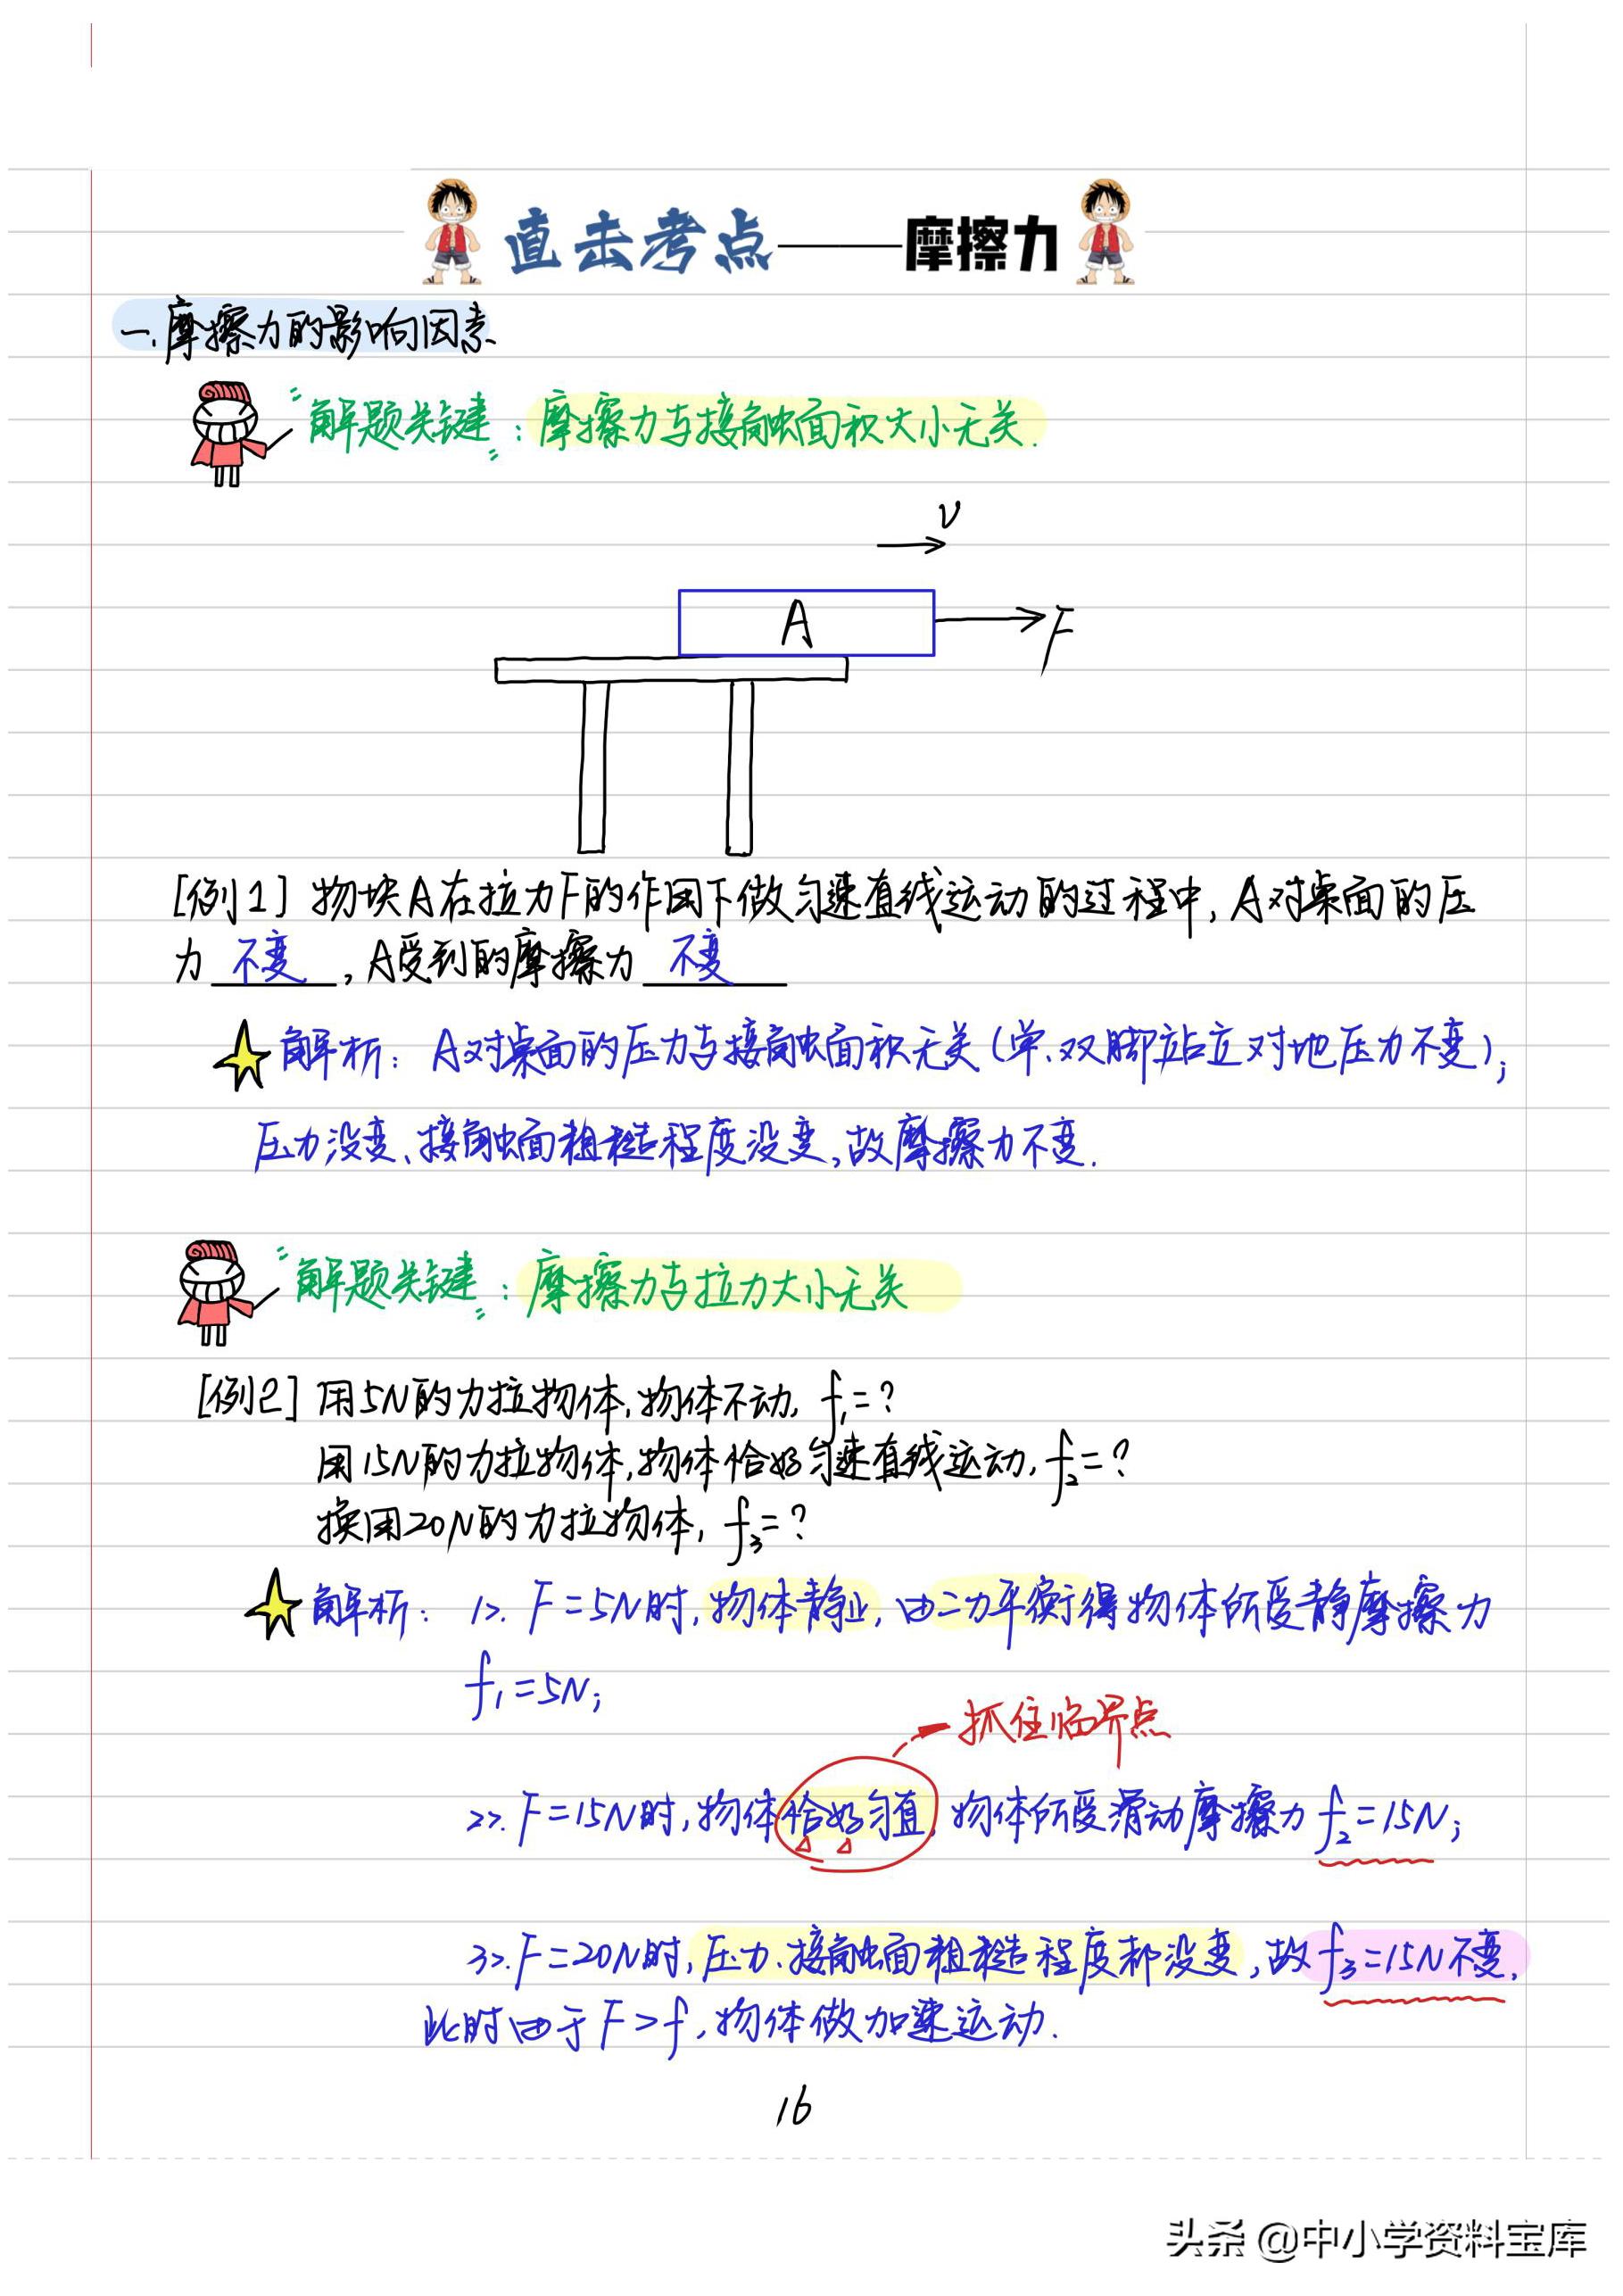 直击考点——摩擦力
一.摩擦力的影响因素
"解题关键":摩擦力与接触面积大小无关.
v
A
F
[例1] 物块A在拉力F的作用下做匀速直线运动的过程中,A对桌面的压
力 不变 ,A受到的摩擦力 不变
解析:A对桌面的压力与接触面积无关(单、双脚站立对地压力不变);
压力没变、接触面粗糙程度没变,故摩擦力不变.
"解题关键":摩擦力与拉力大小无关
[例2] 用5N的力拉物体,物体不动, f₁=?
用15N的力拉物体,物体恰好匀速直线运动, f₂=?
换用20N的力拉物体, f₃=?
解析: 1>. F=5N时,物体静止,由二力平衡得物体所受静摩擦力
f₁=5N;
抓住临界点
2>. F=15N时,物体恰好匀直,物体所受滑动摩擦力f₂=15N;
3>. F=20N时,压力、接触面粗糙程度都没变,故f₃=15N不变,
此时由于F>f,物体做加速运动.
16
头条 @中小学资料宝库